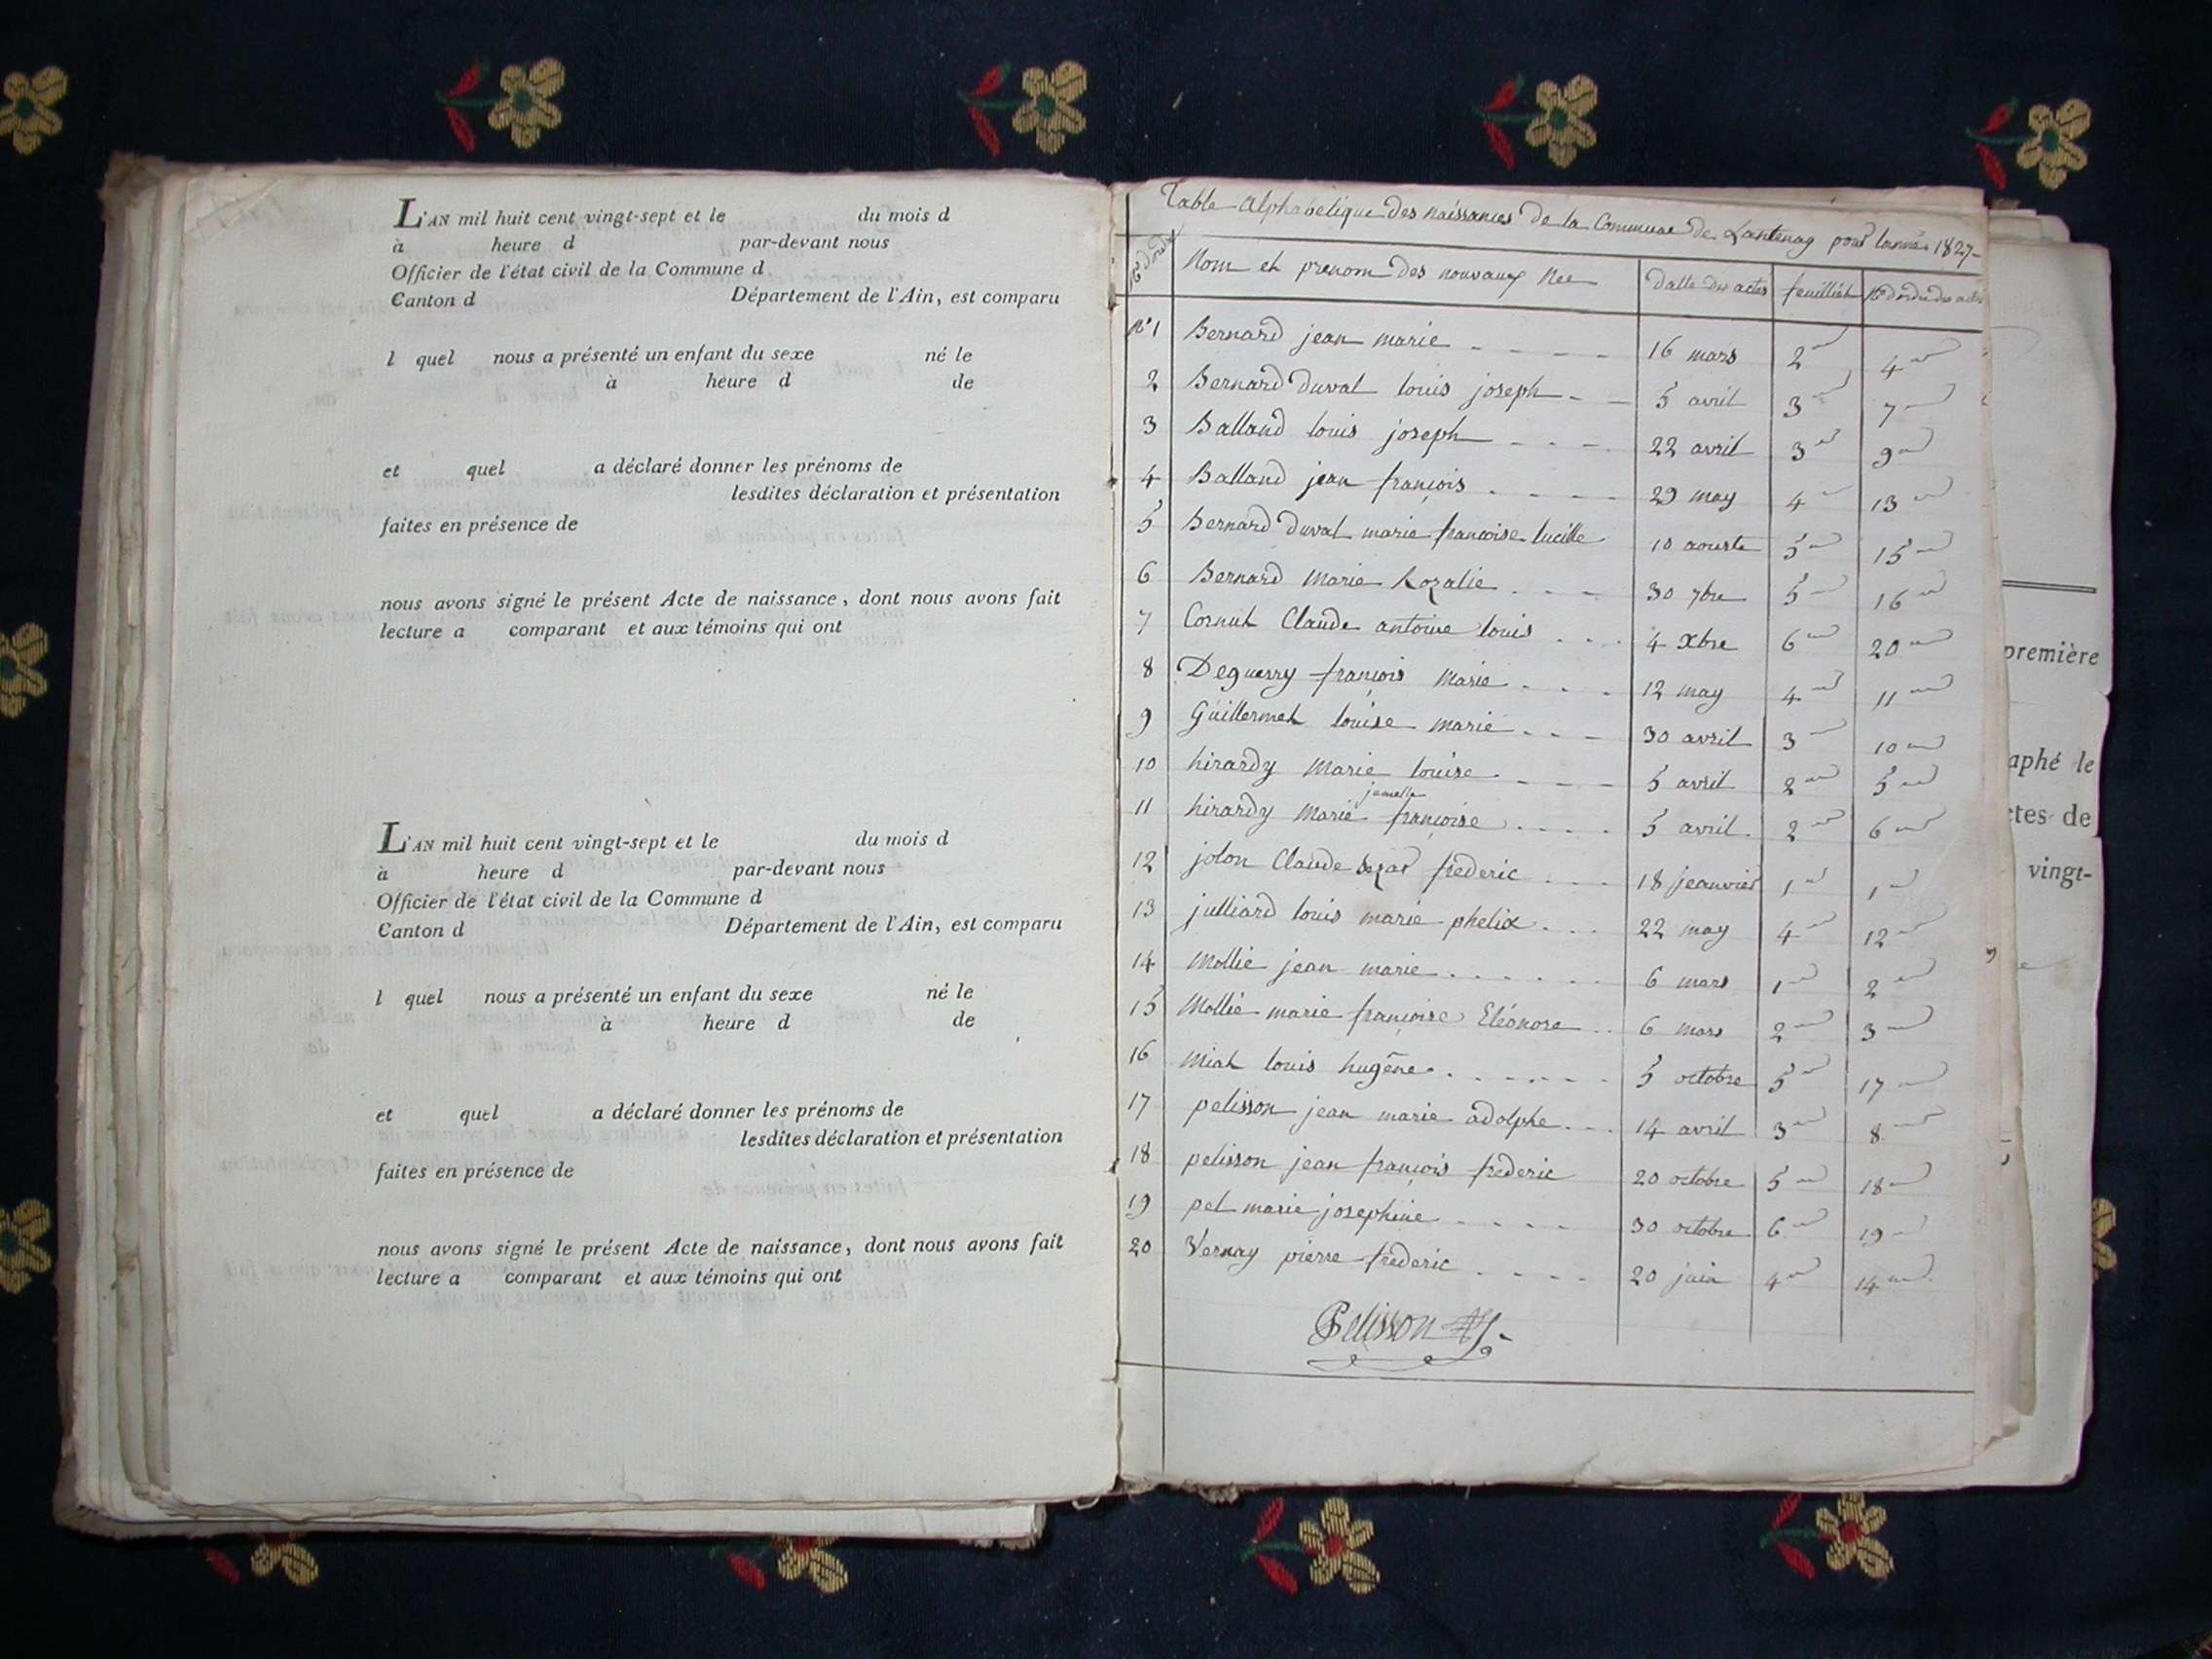 L'AN mil huit cent vingt-sept et le du mois d
à heure d par-devant nous
Officier de l'état civil de la Commune d
Canton d Département de l'Ain, est comparu
l quel nous a présenté un enfant du sexe né le
à heure d de
et quel a déclaré donner les prénoms de
lesdites déclaration et présentation
faites en présence de
nous avons signé le présent Acte de naissance, dont nous avons fait
lecture a comparant et aux témoins qui ont
L'AN mil huit cent vingt-sept et le du mois d
à heure d par-devant nous
Officier de l'état civil de la Commune d
Canton d Département de l'Ain, est comparu
l quel nous a présenté un enfant du sexe né le
à heure d de
et quel a déclaré donner les prénoms de
lesdites déclaration et présentation
faites en présence de
nous avons signé le présent Acte de naissance, dont nous avons fait
lecture a comparant et aux témoins qui ont
Table Alphabetique des naissances de la Commune de Lantenay pour lannée 1827
N° dordre Nom et prenom des nouvaux Nee datte des actes feuilliet N° dordre des actes
N° 1 Bernard jean marie 16 mars 2 4
2 Bernard Duval louis joseph 5 avril 3 7
3 Balland louis joseph 22 avril 3 9
4 Balland jean françois 29 may 4 13
5 Bernard Duval marie françoise lucille 10 aouste 5 15
6 Bernard Marie Rozalie 30 7bre 5 16
7 Cornut Claude antoine louis 4 Xbre 6 20
8 Deguerry françois Marie 12 may 4 11
9 Guillermet louise marie 30 avril 3 10
10 hirardy Marie louise 5 avril 2 5
11 hirardy Marie jumelle françoise 5 avril 2 6
12 jolon Claude Sezar frederic 18 jeanvier 1 1
13 julliard louis marie phelix 22 may 4 12
14 Mollié jean marie 6 mars 1 2
15 Mollié marie françoise Eléonore 6 mars 2 3
16 Miat louis hugêne 5 octobre 5 17
17 pelisson jean marie adolphe 14 avril 3 8
18 pelisson jean françois frederic 20 octobre 5 18
19 pet marie josephine 30 octobre 6 19
20 Vernay pierre frederic 20 juin 4 14
Pelisson
première
aphé le
ctes de
vingt-